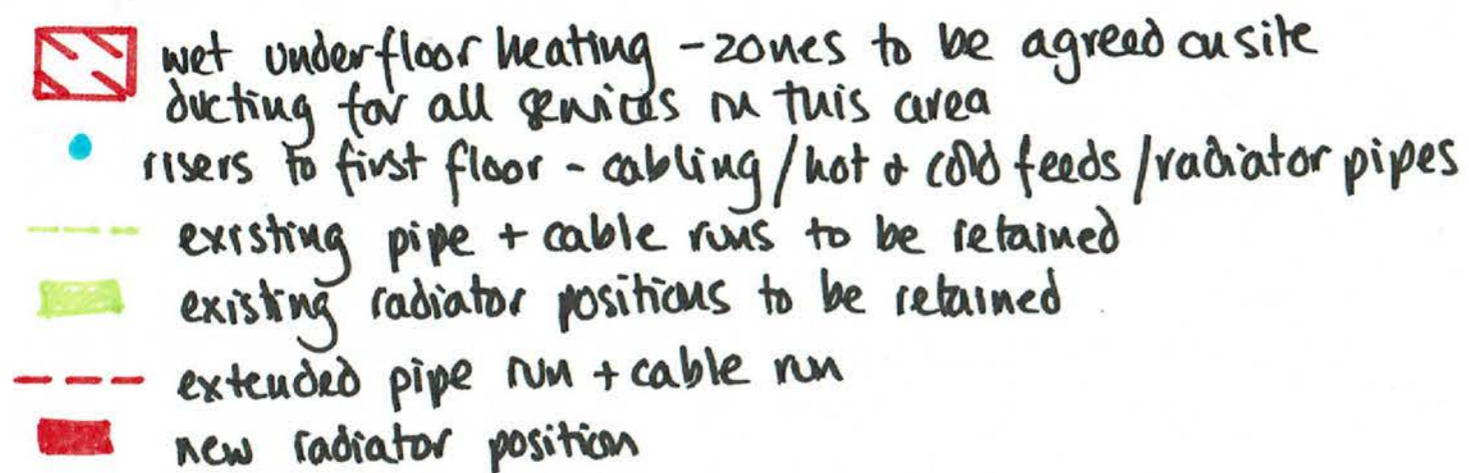 wet underfloor heating - zones to be agreed on site
ducting for all services in this area
risers to first floor - cabling / hot & cold feeds / radiator pipes
existing pipe + cable runs to be retained
existing radiator positions to be retained
extended pipe run + cable run
new radiator position